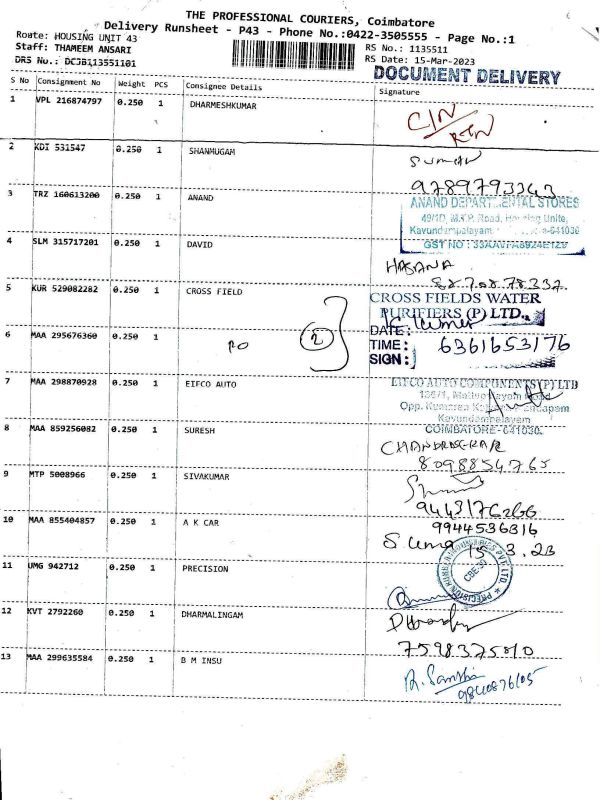 THE PROFESSIONAL COURIERS, Coimbatore
Delivery Runsheet - P43 - Phone No.:0422-3505555 - Page No.:1
Route: HOUSING UNIT 43
Staff: THAMEEM ANSARI
DRS No.: DCJB113551101
RS No.: 1135511
RS Date: 15-Mar-2023
DOCUMENT DELIVERY
S No Consignment No Weight PCS Consignee Details Signature
1 VPL 216874797 0.250 1 DHARMESHKUMAR
2 KDI 531547 0.250 1 SHANMUGAM
9789793343
3 TRZ 160613200 0.250 1 ANAND
ANAND DEPARTMENTAL STORES
Road, Housing Unite,
Kavundampalayam
GST NO :
4 SLM 315717201 0.250 1 DAVID
HASANA
5 KUR 529082282 0.250 1 CROSS FIELD
CROSS FIELDS WATER
PURIFIERS (P) LTD.,
DATE:
2
6 MAA 295676360 0.250 1
TIME: 6361653176
SIGN:
7 MAA 298870928 0.250 1 EIFCO AUTO
EIFCO AUTO COMPONENTS (P) LTD
Kavundampalayam
COIMBATORE-641030.
8 MAA 859256082 0.250 1 SURESH
8098854765
9 MTP 5008966 0.250 1 SIVAKUMAR
9443176266
10 MAA 855404857 0.250 1 A K CAR
9944536316
S. Uma 15.3.23
11 UMG 942712 0.250 1 PRECISION
CBE-30
12 KVT 2792260 0.250 1 DHARMALINGAM
13 MAA 299635584 0.250 1 B M INSU